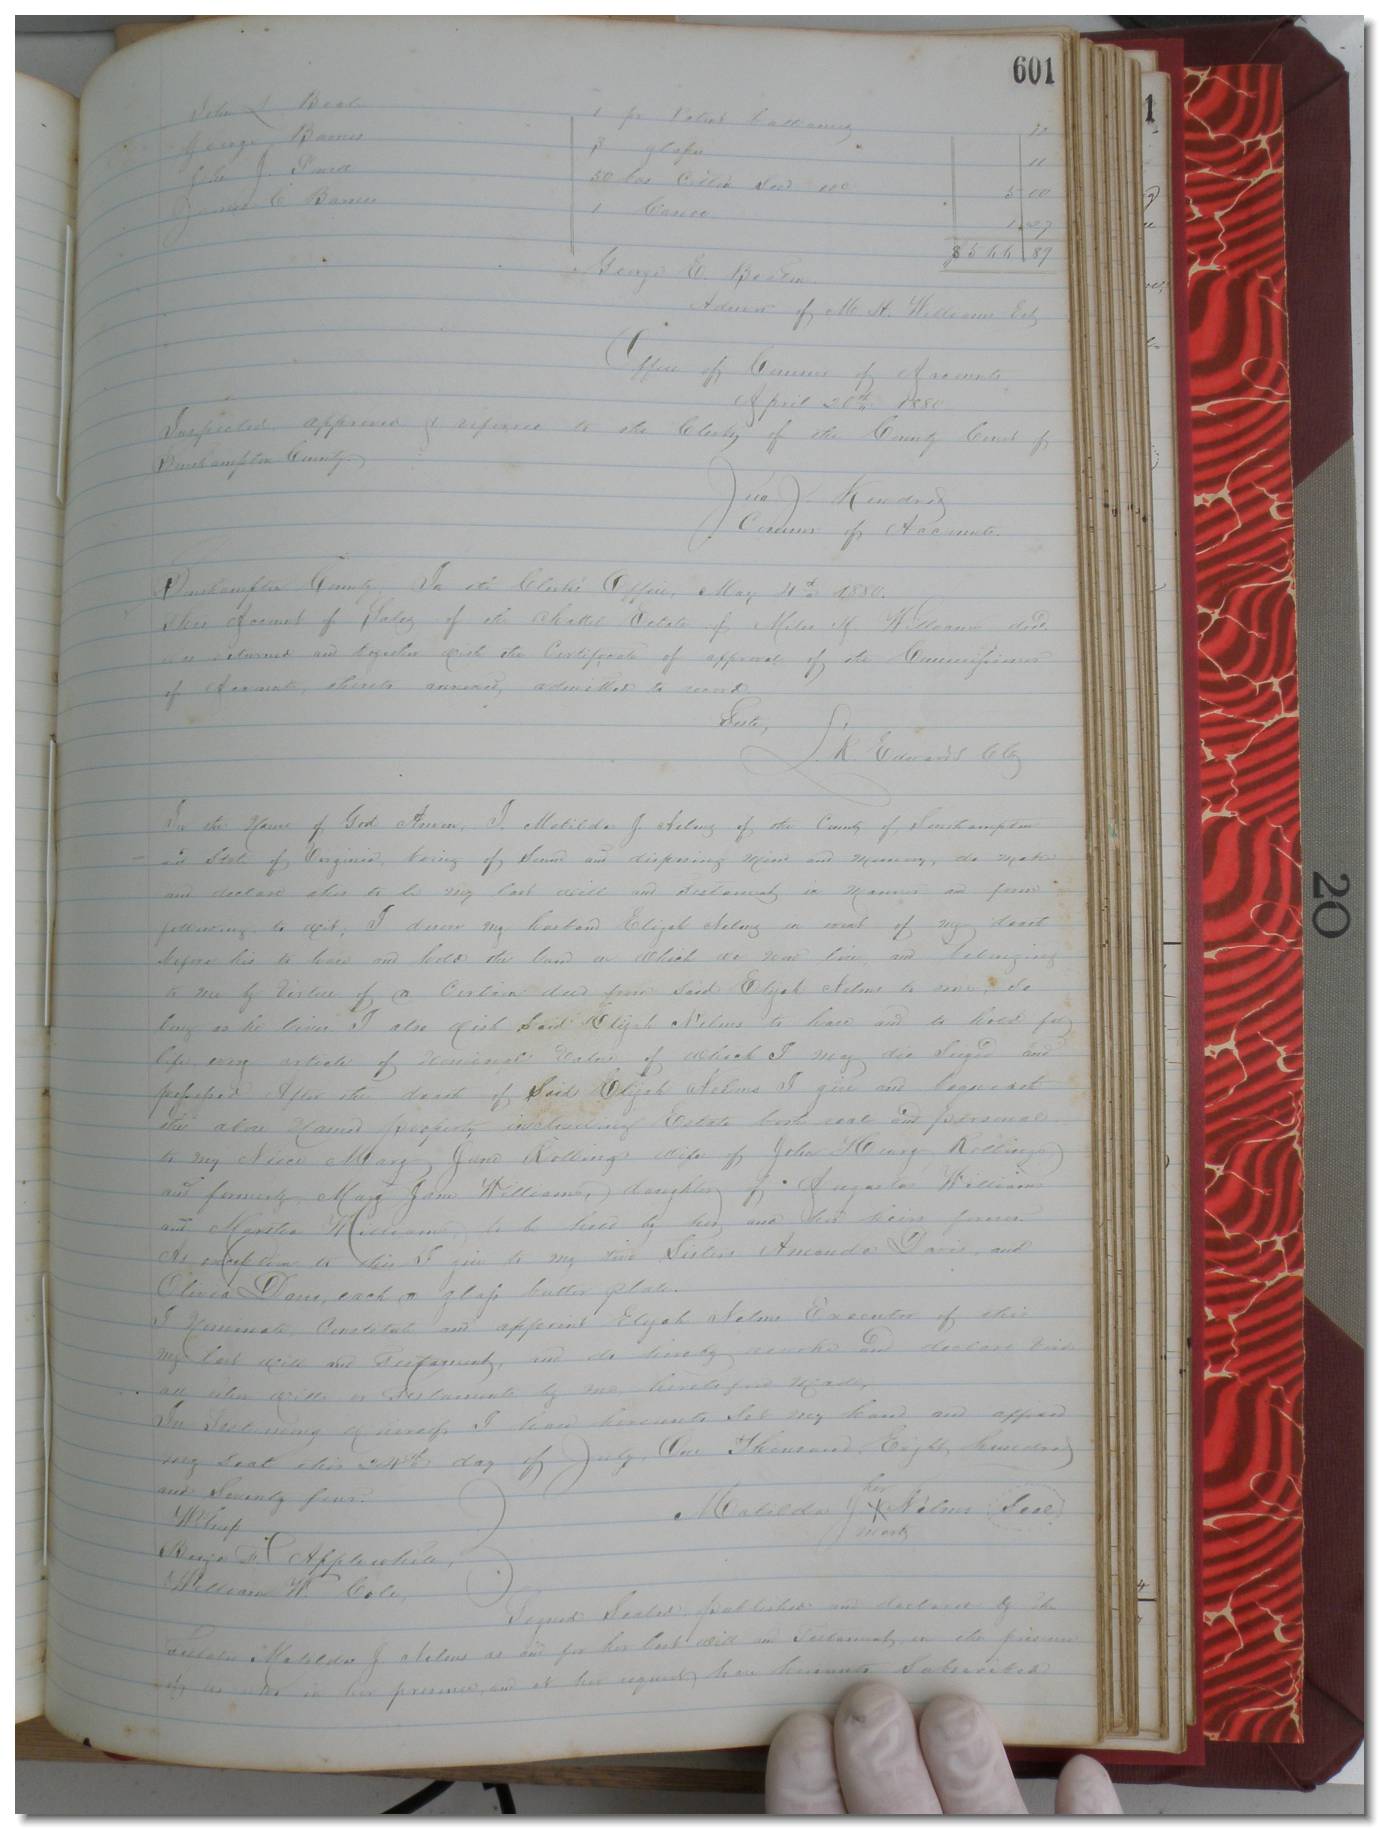 601
John L Beale 1 pr
George Barnes 3 glass 11
Jno J. 50 5 00
James C Barnes 1 1.27
$544 89
George E. Beaton
Admor of M. H. Williams Est
Office of Commr of Accounts
April 20th 1880
Inspected, approved & referred to the Clerk of the County Court of
Southampton County.
Jno J. Kindred
Commr of Accounts.
Southampton County, In the Clerk's Office, May 4th 1880.
This Account of Sales of the Chattel Estate of Miles H. Williams decd
was returned and together with the Certificate of approval of the Commissioner
of Accounts, thereto annexed, admitted to record
Teste, L. R. Edwards Clk
In the Name of God Amen, I, Matilda J Nelms of the County of Southampton
and State of Virginia, being of Sound and disposing Mind and Memory, do make
and declare this to be my last will and Testament in Manner and form
following to wit; I desire my husband Elijah Nelms in event of my death
before his to have and hold the land on which we now live, and belonging
to me by Virtue of a Certain deed from Said Elijah Nelms to me, So
long as he lives I also wish Said Elijah Nelms to have and to hold for
life every article of Value of which I may die Seized and
possessed After the death of Said Elijah Nelms I give and bequeath
the above Named property including Estate both real and personal
to my Niece Mary Jane Rollings wife of John Henry Rollings
and formerly Mary Jane Williams, daughter of Williams
and Martha Williams, to be held by her, and her heirs forever
As exception to this I give to my two Sisters Amanda Davis, and
Olivia Davis, each a glass butter plate.
I Nominate, Constitute and appoint Elijah Nelms Executor of this
my last will and Testament, and do hereby revoke and declare Void
all other wills or Testaments by me, heretofore Made,
In Testimony whereof, I have hereunto Set my hand and affixed
my Seal this 24th day of July, One Thousand Eight hundred
and Seventy four.
her
Matilda J X Nelms Seal
mark
Witness
Benja F. Applewhite,
William W. Cole,
Signed Sealed published and declared by the
Testator Matilda J Nelms as and for her last will and Testament, in the presence
of us who in her presence, and at her request, have hereunto Subscribed
20